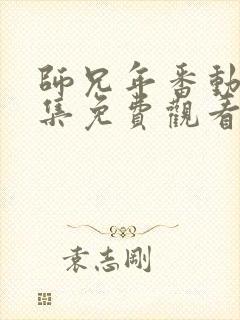 師兄年番動
集免費觀看
袁志剛